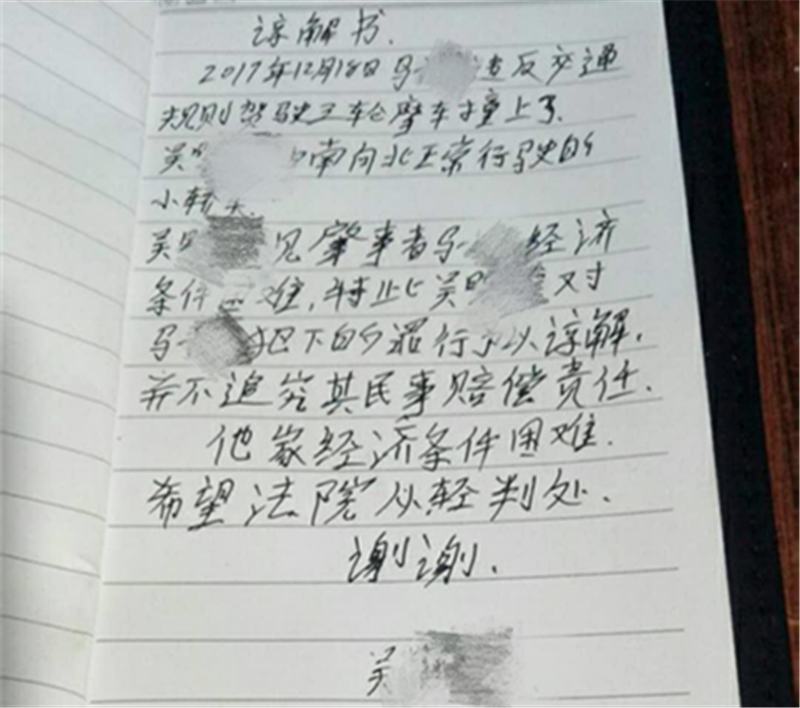 谅解书.
2017年12月18日马 违反交通
规则驾驶三轮摩车撞上了.
吴 南向北正常行驶的
小轿车.
吴 见肇事者马 经济
条件困难,特此吴 对
马 犯下的罪行予以谅解.
并不追究其民事赔偿责任.
他家经济条件困难.
希望法院从轻判处.
谢谢.
吴